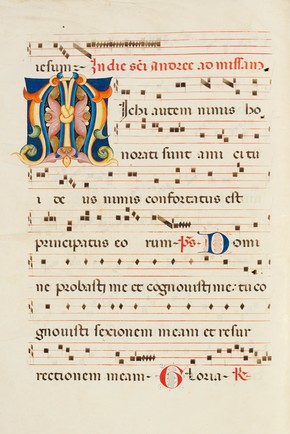 iesum: In die sci andree ad missam
Michi autem nimis ho
norati sunt ami ci tu
i de us nimis confortatus est
principatus eo rum ps Domi
ne probasti me et cognouisti me: tu co
gnouisti sexionem meam et resur
rectionem meam Gloria